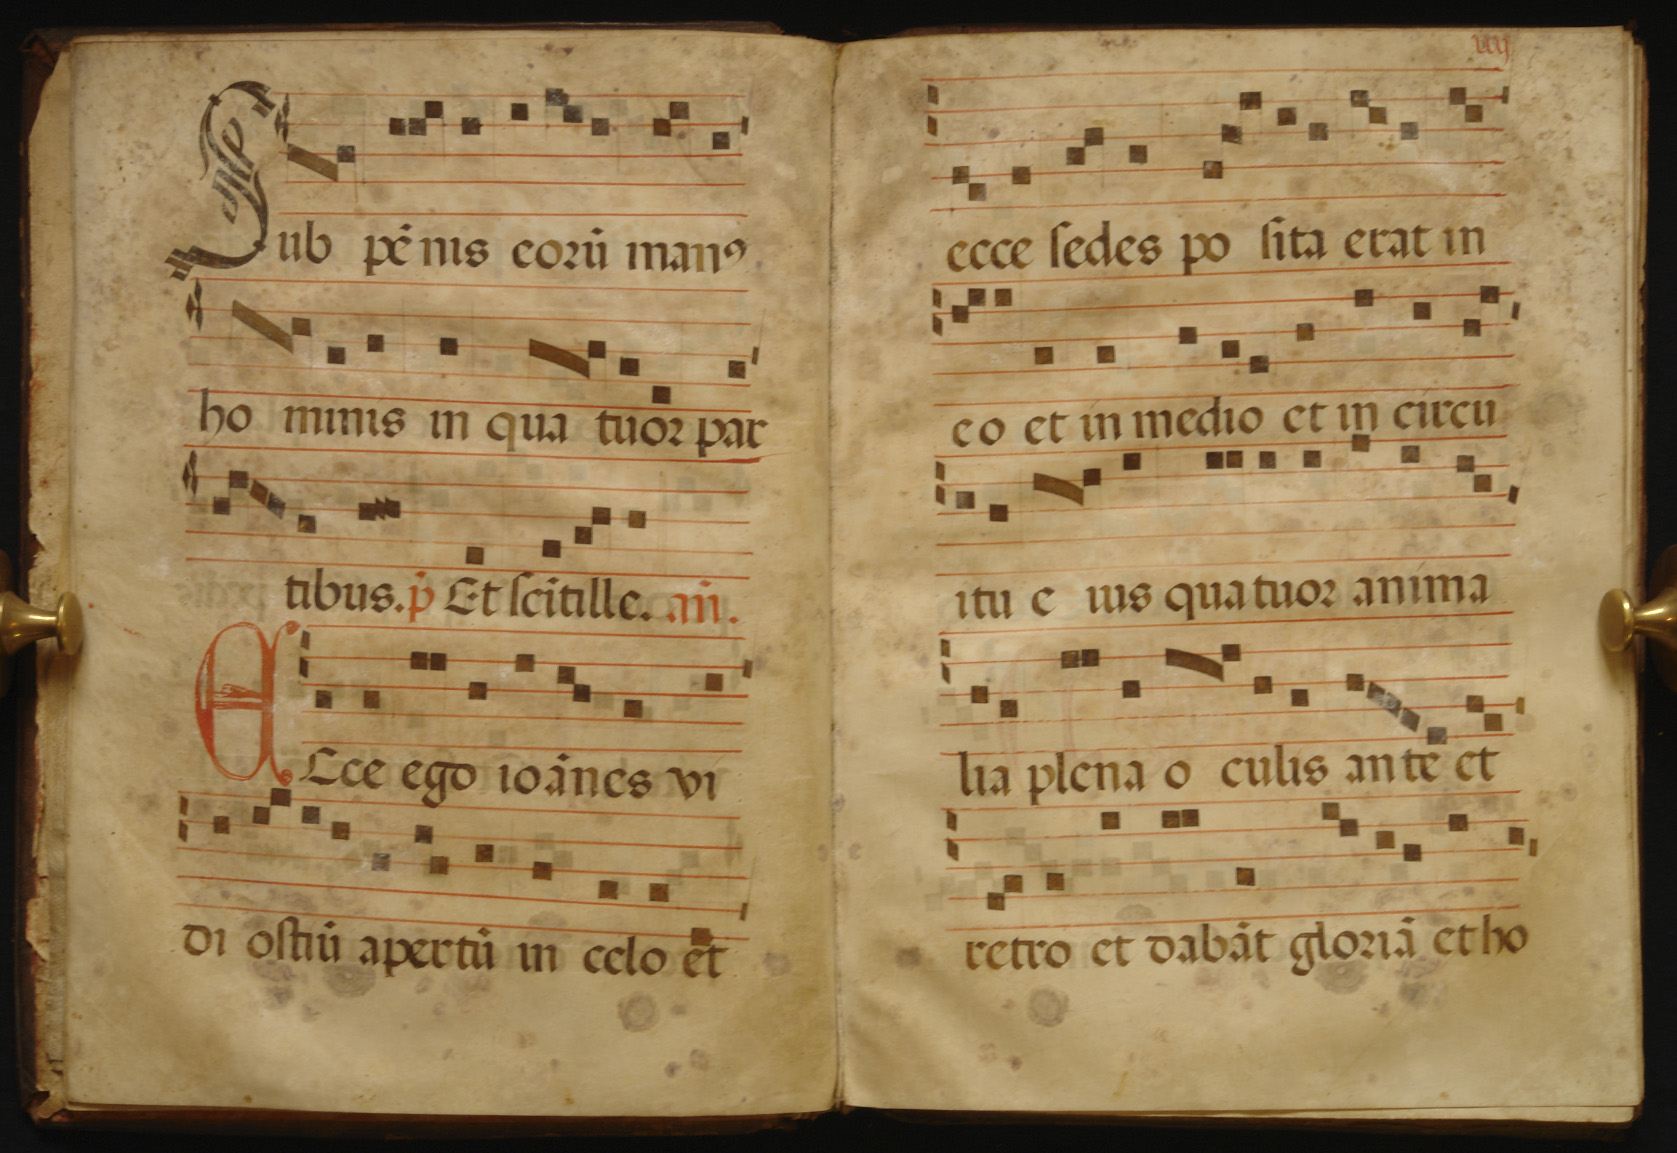 Sub pēnis eorū manꝰ
ho minis in qua tuor par
tibus. p̄ Et scītille. añ.
ECce ego ioānes vi
di ostiū apertū in celo et
iiij
ecce sedes po sita erat in
eo et in medio et in circu
itu e ius quatuor anima
lia plena o culis ante et
retro et dabāt gloriā et ho